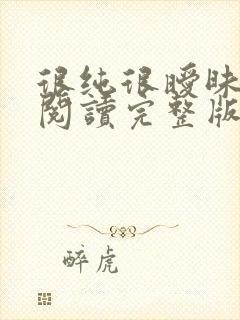 很純很曖昧
閱讀完整版
醉虎